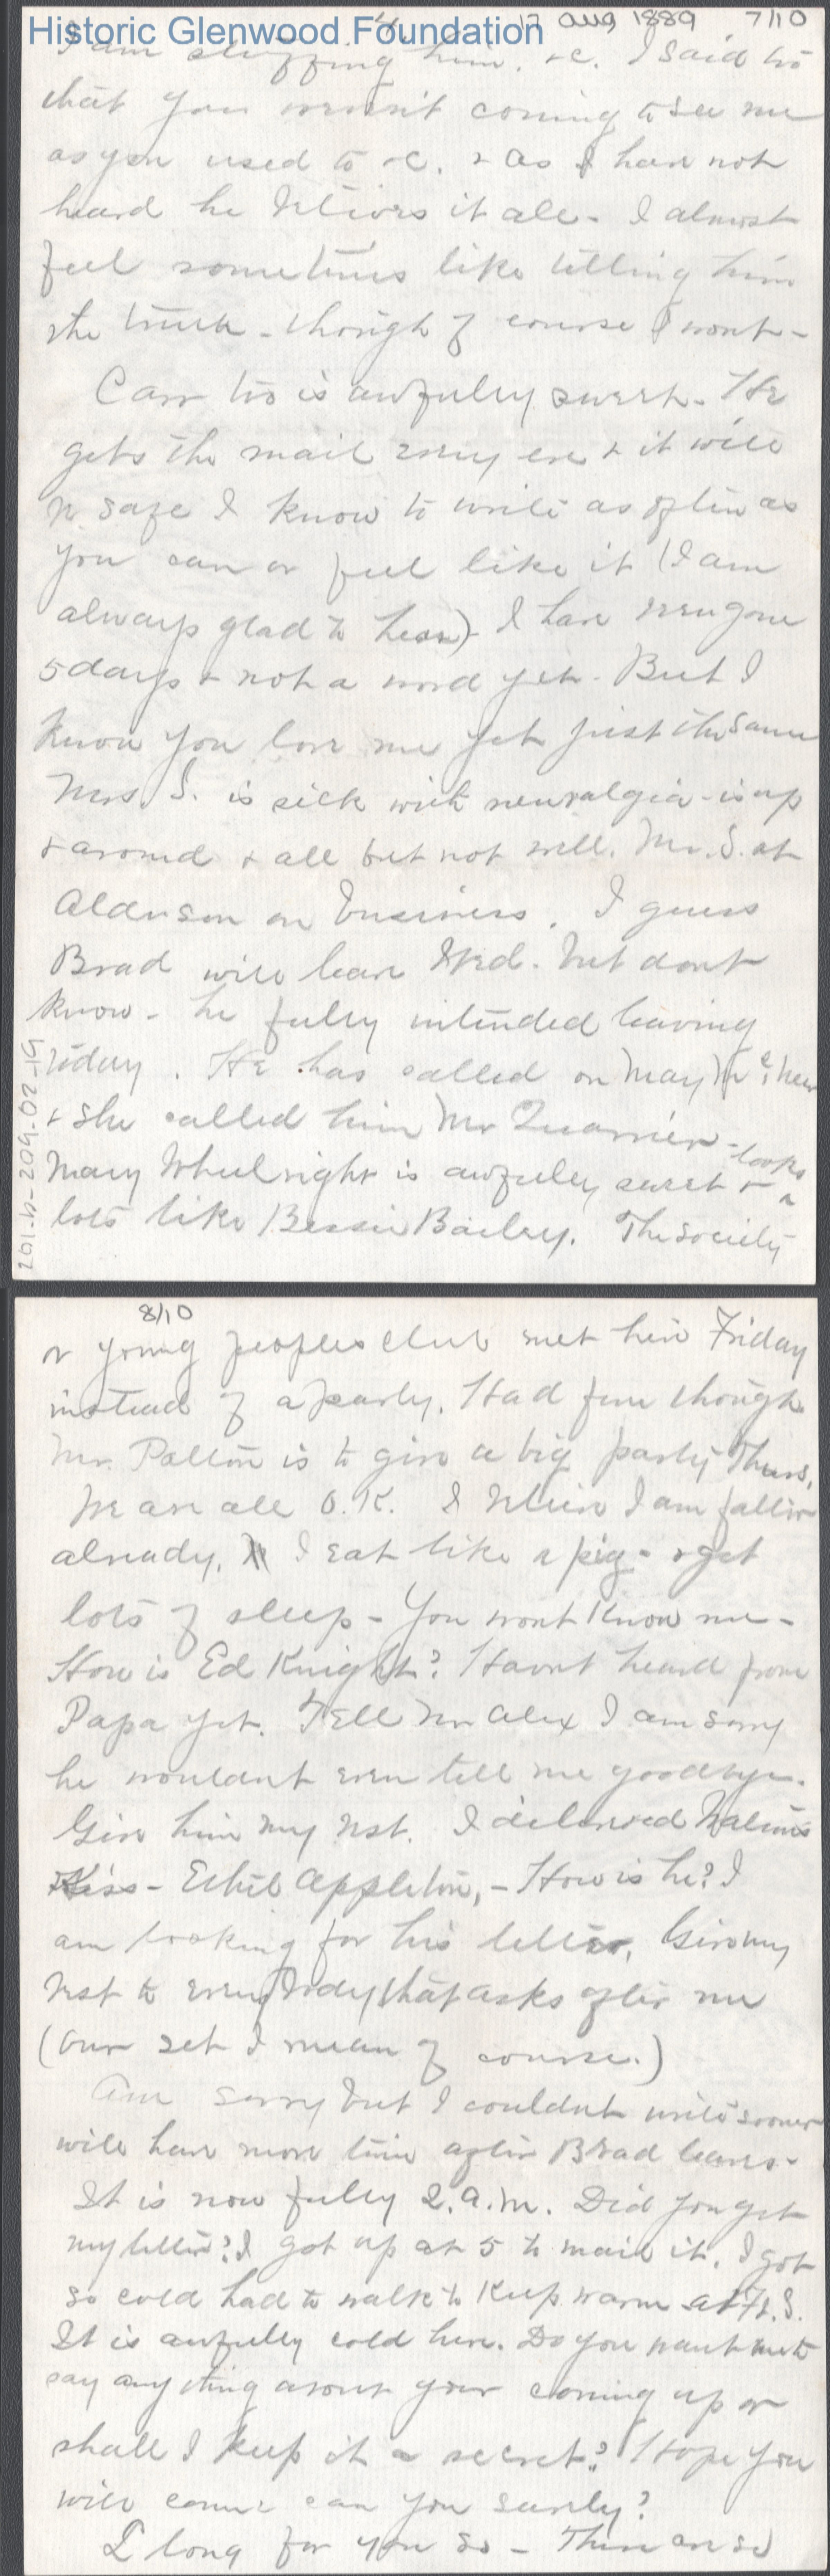 Historic Glenwood Foundation
4 17 Aug 1889 7/10
I am stuffing him. &c. I said too
that you weren't coming to see me
as you used to &c. & as I have not
heard he believes it all - I almost
feel sometimes like telling him
the truth - though of course I wont -
Carr too is awfully sweet. He
gets the mail every eve & it will
be safe I know to write as often as
you can or feel like it (I am
always glad to hear) - I have been gone
5 days & not a word yet. But I
know you love me yet just the same
Mrs. S. is sick with neuralgia - is up
& around & all but not well. Mr. S. at
Alderson on business. I guess
Brad will leave Wed. but dont
know - he fully intended leaving
today. He has called on May
& she called him Mr Quarrier -
Mary Wheelwright is awfully sweet & looks
lots like Bessie Bailey. The society
201-b-209-02-19
8/10
or young peoples club met here Friday
instead of a party. Had fun though
Mr. Patton is to give a big party Thurs.
We are all O.K. I believe I am fatter
already. I eat like a pig - & get
lots of sleep - You wont know me -
How is Ed Knight? Havnt heard from
Papa yet. Tell Mr Alex I am sorry
he wouldnt even tell me goodbye.
Give him my best. I delivered
Kiss - Ethel Appleton, - How is he? I
am looking for his letter. Give my
best to everybody that asks after me
(our set I mean of course.)
Am sorry but I couldnt write sooner
will have more time after Brad leaves -
It is now fully 2. a.m. Did you get
my letter? I got up at 5 to mail it. I got
so cold had to walk to keep warm at Ft. S.
It is awfully cold here. Do you want me to
say anything about your coming up or
shall I keep it a secret? Hope you
will come can you surely?
I long for you so - There are so